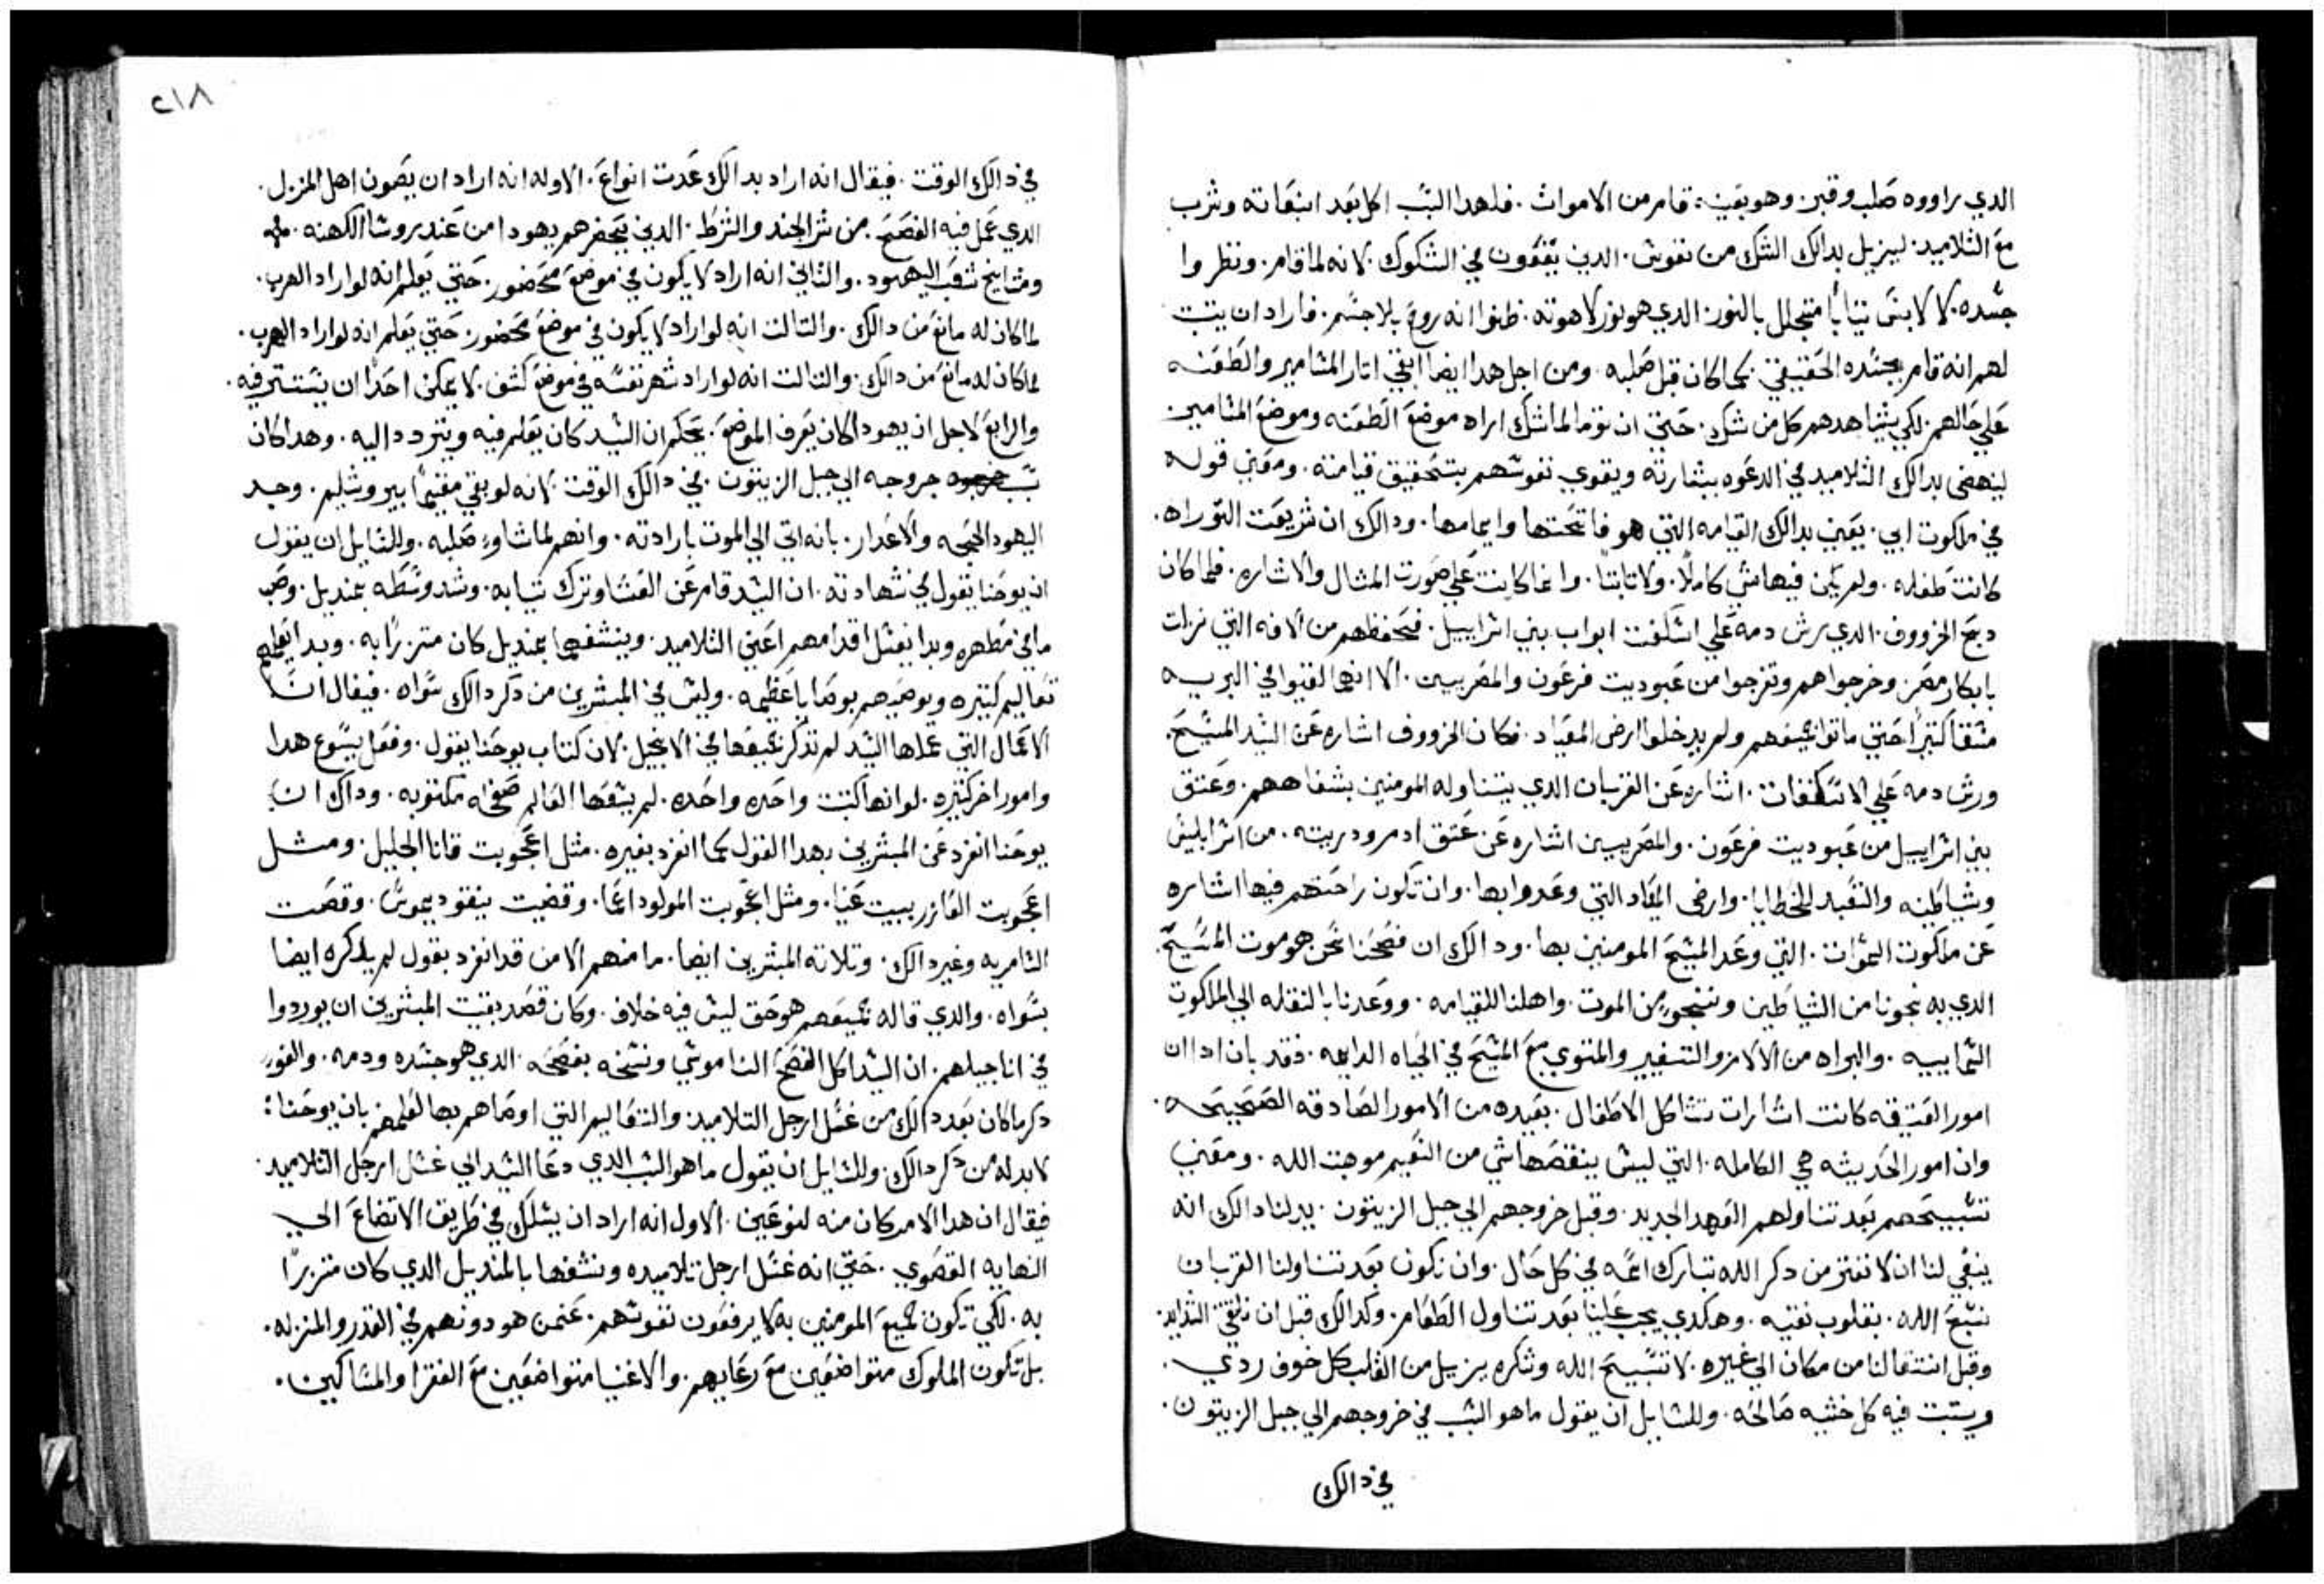 الدي براووه صَلب وقبر. وهو بعَينه قام من الاموات. فلهدا السَبب اكل بَعد انبعَاته وشرب
مَع التلاميد. ليزيل بدالك الشك من نفوس. الدين يقعَون في الشكوك. لانه لما قام. ونظروا
جسَده. لا لابسَ تيابًا متجلل بالنور. الدي هو نور لاهوته. ظنوا انه روحَ بلا جسَم. فاراد ان يتبت
لهم انه قام بجسَده الحَقيقي. كما كان قبل صَلبه. ومن اجل هدا ايضا ابقي اتار المسامير والطَعَنه
عَلي حَالهم. لكي يشاهدهم كل من شك. حَتي ان توما لما شك اراه موضعَ الطَعَنه وموضعَ المسامير
لينهض بدالك التلاميد في الدعَوه ببشارته ويقوي نفوسَهم بتَحقيق قيامته. ومعَني قوله
في ملكوت ابي. يعَني بدالك القيامه التي هو فاتحَتها وايمامها. ودالك ان شريعَت التوراه.
كانت طفله. ولم يكن فيها شي كاملًا. ولا تابتًا. وانما كانت عَلي صَورت المتال والاشاره. فلما كان
دبحَ الخرووف. الدي رش دمه عَلي اسَكفت ابواب بني اسراييل. فحَفظهم من الافه التي نزلت
بابكار مصَر. وخرجوا هم وتفرجوا من عَبوديت فرعَون والمصَريين. الا انهم لقيوا في البريه
مشقا كتيرًا حَتي ماتوا جميعَهم ولم يدخلوا ارض الميعَاد. فكان الخرووف اشاره عَن السَيد المسَيحَ.
ورش دمه عَلي الاسَكفات. اشاره عَن القربان الدي يتناوله المومنين بشفاههم. وعَتق
بني اسراييل من عَبوديت فرعَون. والمصَريين اشاره عَن عَتق ادم ودريته. من اسر ابليس
وشياطَينه والتعَبد للخطَايا. وارض الميعَاد التي وعَدوا بها. وان تكون راحَتهم فيها اشاره
عَن ملكوت السَموات. التي وعَد المسيحَ المومنين بها. ودالك ان فصَحَنا نحَن هو موت المسَيحَ.
الدي به نجونا من الشياطَين وننجو من الموت. واهلنا للقيامه. ووعَدنا بالنقله الي الملكوت
السَماييه. والبراه من الالام والتغيير والمتوي معَ المسيحَ في الحَياه الدايمه. فقد بان ادا ان
امور العَتيقه كانت اشارات تشاكل الاطَفال. بعَيده من الامور الصَادقه الصَحيحَه.
وان امور الحَديثه هي الكامله. التي ليس ينقصَها شي من النعَيم موهبت الله. ومعَني
تسَبيحَهم بعَد تناولهم العَهد الجديد. وقبل خروجهم الي جبل الزيتون. يدلنا دالك انه
ينبغي لنا ان لا نفتر من دكر الله تبارك اسَمه في كل حَال. وان نكون بعَد تناولنا القربان
نسَبحَ الله. بقلوب نقيه. وهكدي يجب عَلينا بعَد تناول الطَعَام. وكدالك قبل ان
وقبل انتقالنا من مكان الي غيره. لا تسَبيحَ الله وشكره يزيل من القلب كل خوف ردي.
ويتبت فيه كل خشيه صَالحَه. وللسَايل ان يقول ما هو السَبب في خروجهم الي جبل الزيتون.
في دالك
٢١٨
في دالك الوقت. فيقال انه اراد بدالك عَدت انواعَ. الاوله انه اراد ان يصَون اهل المنزل.
الدي عَمل فيه الفصَحَ. من شر الجند والشرط. الدين يحَضرهم يهودا من عَند روسَا الكهنه.
ومشايخ شعَب اليهود. والتاني انه اراد لا يكون في موضعَ محَصور. حَتي يعَلم انه لو اراد الهرب.
لما كان له مانعَ من دالك. والتالت انه لو اراد لا يكون في موضعَ محَصور. حَتي يعَلم انه لو اراد الهرب.
لما كان له مانعَ من دالك. والتالت انه لو اراد شهر نفسَه في موضعَ كشف. لا يمكن احَدًا ان يسَتتر فيه.
والرابعَ لاجل ان يهودا كان يعَرف الموضعَ. بحَكم ان السَيد كان يعَلم فيه ويتردد اليه. وهدا كان
سَبب جروجه الي جبل الزيتون. في دالك الوقت لانه لو بقي مقيمًا بيروشليم. وجد
اليهود الحَجه والاعَدار. بانه اتي الي الموت بارادته. وانهم لما شاو صَلبه. وللسَايل ان يقول
ان يوحَنا يقول في شهادته. ان السَيد قام عَن العَشا وترك تيابه. وشد وسَطَه بمنديل. وصَب
ما في مَطَهره وبدا يغسَل اقدامهم اعَني التلاميد. وينشفهما بمنديل كان متزرًا به. وبدا يعَلمهم
تعَاليم كتيره ويوصَيهم بوصَايا عَظيمه. وليس في المبشرين من دكر دالك سَواه. فيقال ان
الاعَمال التي عَملها السَيد لم تدكر جميعَها في الانجيل. لان كتاب يوحَنا يقول. وفعَل يسَوع هدا
وامور اخر كتيره. لو انها كتبت واحَده واحَده. لم يسَعَها العَالم صَحفا مكتوبه. وداك ان
يوحَنا انفرد عَن المبشرين بهدا القول كما انفرد بغيره. متل اعَجوبت قانا الجليل. ومتل
اعَجوبت العَازر ببيت عَنيا. ومتل اعَجوبت المولود اعَما. وقضيت نيقوديموسَ. وقصَت
السَامريه وغير دالك. وتلاته المبشرين ايضا. ما منهم الا من قد انفرد بقول لم يدكره ايضا
سَواه. والدي قاله جميعَهم هو حَق ليس فيه خلاف. وكان قصَد بقيت المبشرين ان يوردوا
في اناجيلهم. ان السَيد اكل الفصَحَ الناموسَي ونسَخه بفصَحَه. الدي هو جسَده ودمه.
دكر ما كان بعَد دالك من غسَل ارجل التلاميد والتعَاليم التي اوصَاهم بها لعَلمهم بان يوحَنا:
لا بد له من دكر دالك. وللسَايل ان يقول ما هو السَبب الدي دعَا السَيد الي غسَل ارجل التلاميد.
فيقال ان هدا الامر كان منه لنوعَين. الاول انه اراد ان يسَلك في طَريق الاتضاعَ الي
النهايه القصَوي. حَتي انه غسَل ارجل تلاميده ونشفها بالمنديل الدي كان متزرًا
به. لكي تكون جميعَ المومنين به لا يرفعَون نفوسَهم. عَنمن هو دونهم في القدر والمنزله.
بل تكون الملوك متواضعَين معَ رعَاياهم. والاغنيا متواضعَين معَ الفقرا والمسَاكين.